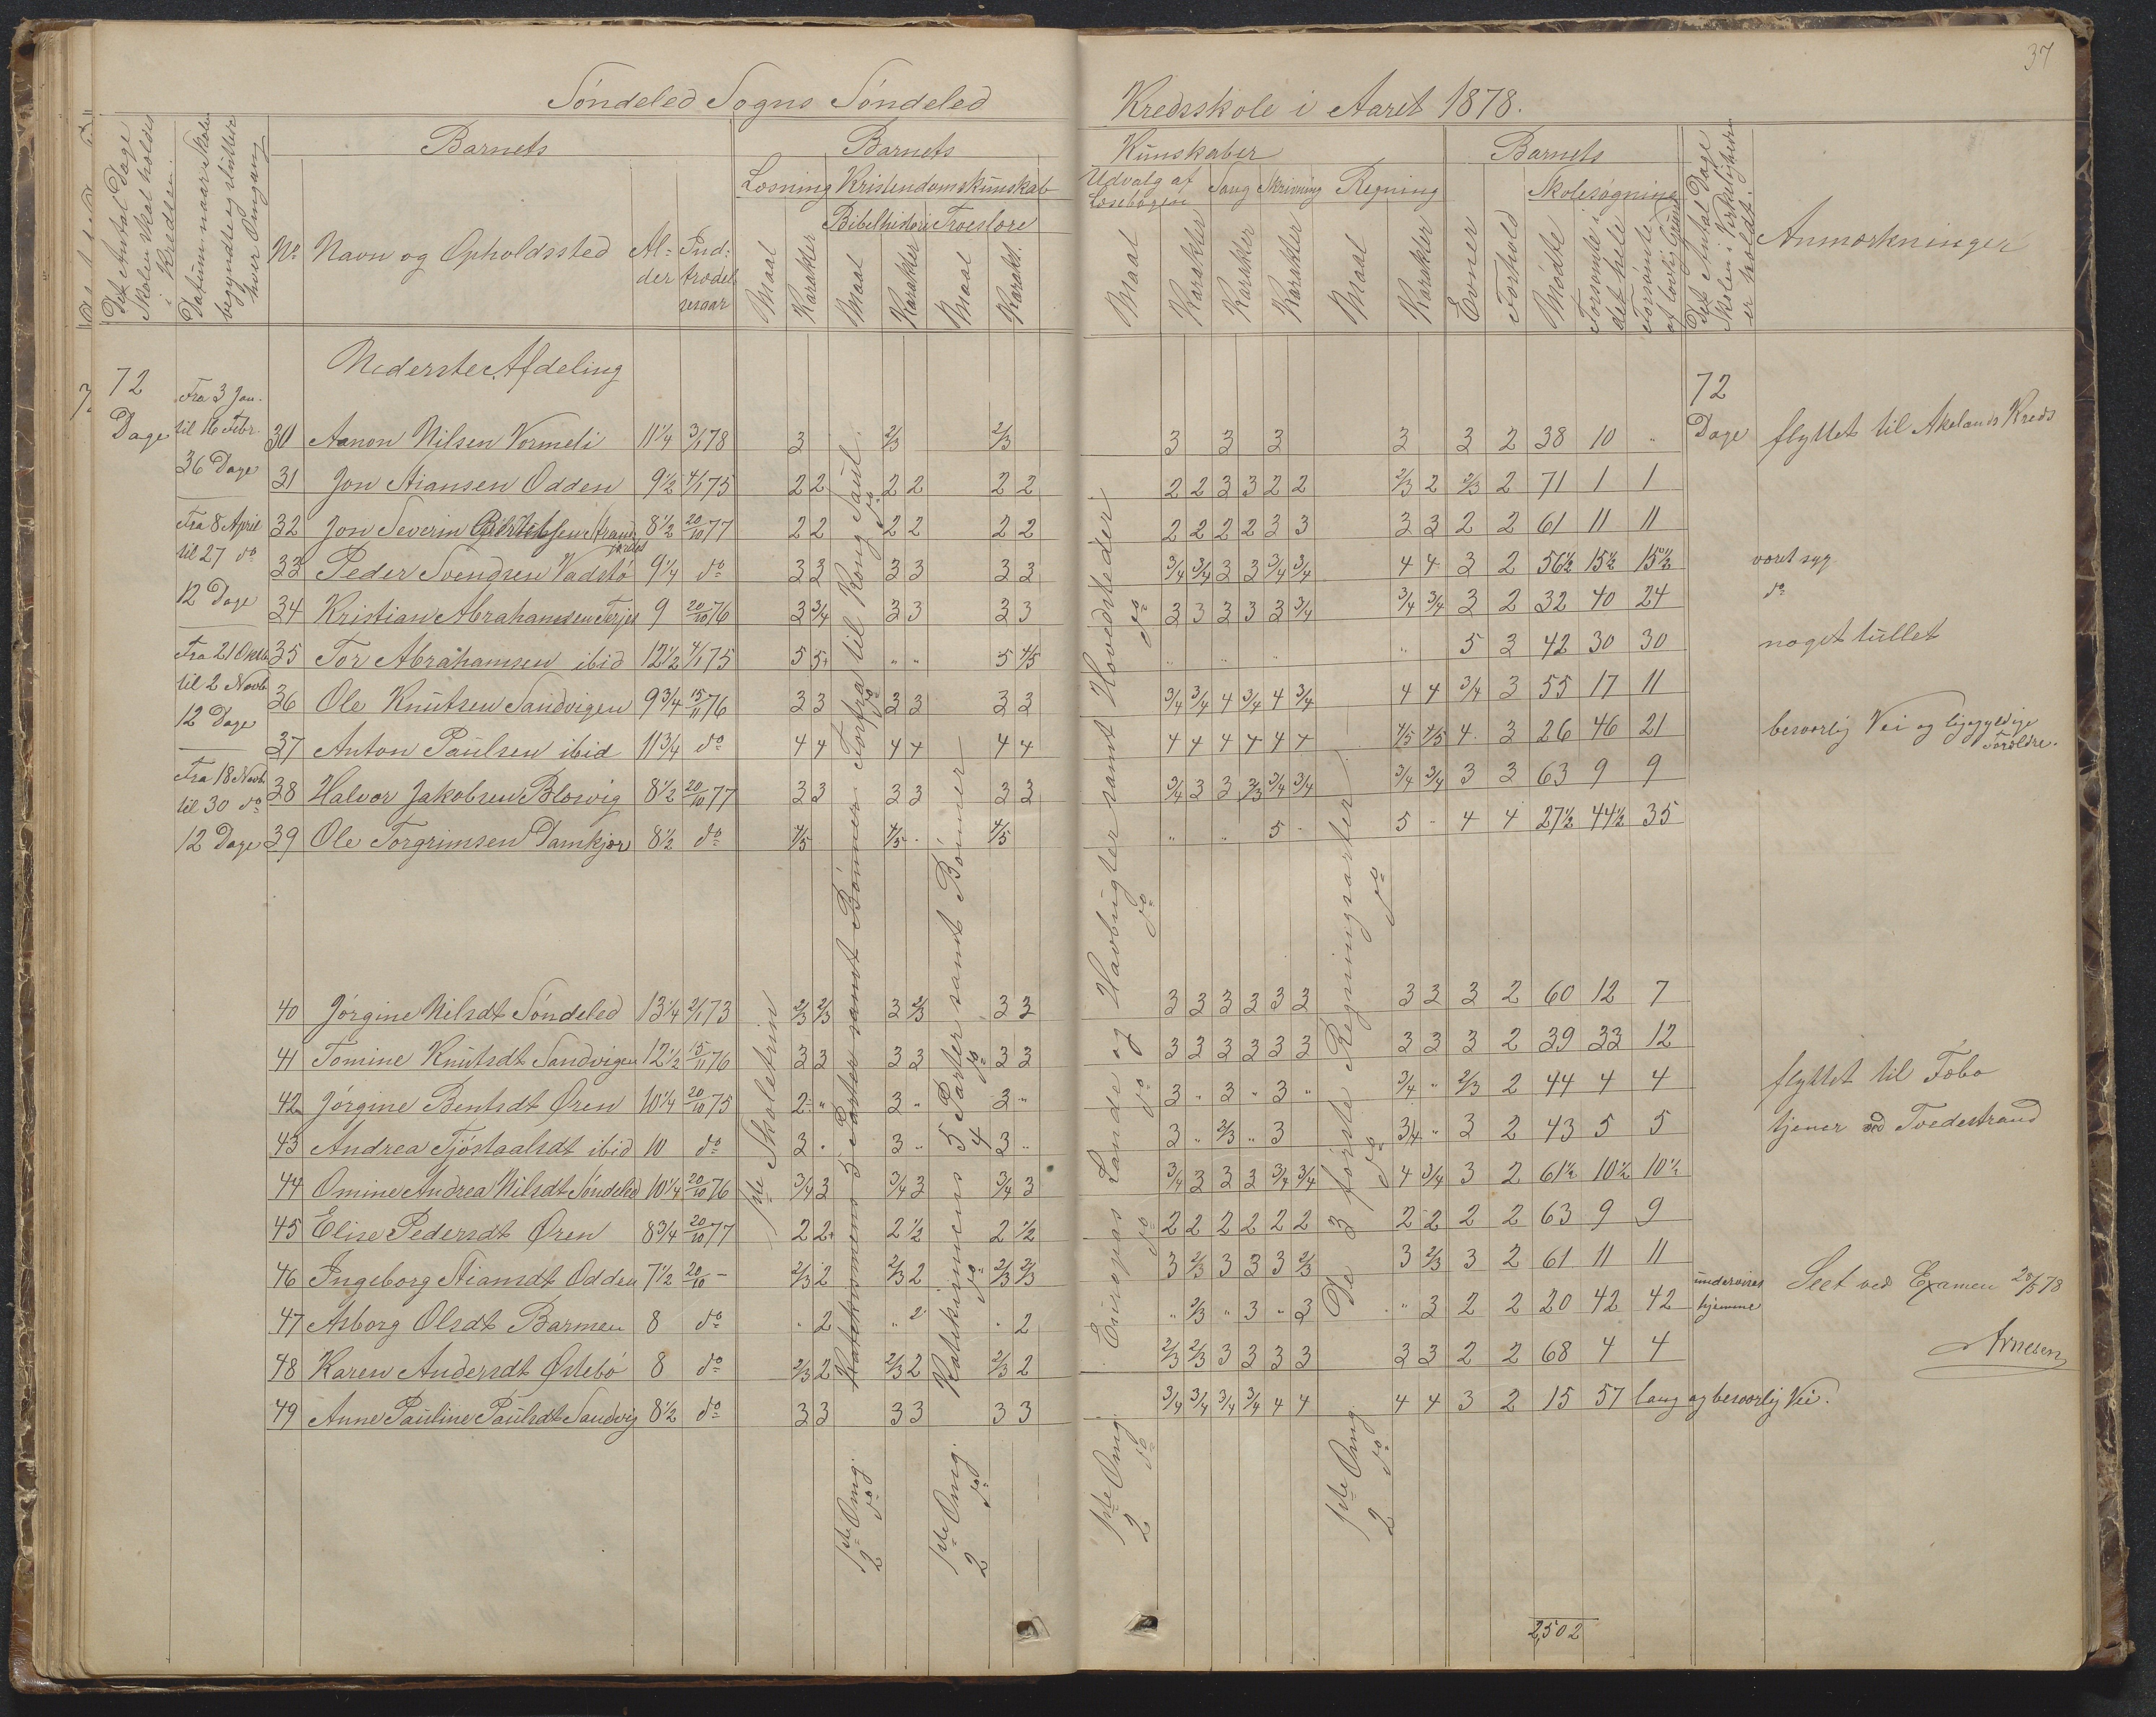 37
Søndeled Sogns Søndeled Kredsskole i Aaret 1878.
Det Antal Dage Skolen skal holdes i Kredsen.
Datum naar Skolen begyndte og sluttede hver Omgang
Barnets
No Navn og Opholdssted Al-der Ind-trædelsesaar
Barnets
Læsning Kristendomskundskab
Bibelhistorie Troeslære
Maal Karakter Maal Karakter Maal Karakt.
Kundskaber
Udvalg af Læsebogen Sang Skrivning Regning
Maal Karakter Karakter Karakter Maal Karakter
Barnets
Evner Forhold Skolesøgning
Mødte Forsømte i det hele Forsømte af lovlig Grund
Det Antal Dage Skolen i Virkeligheden er holdt.
Anmærkninger
Nederste Afdeling
72 Dage
Fra 3 Jan.
til 16 Febr.
36 Dage
Fra 8 April
til 27 do
12 Dage
Fra 21 Oktb
til 2 Novb
12 Dage
Fra 18 Novb
til 30 do
12 Dage
72 Dage
30 Aanon Nilsen Vormeli 11 1/4 3/1 78 3 2/3 2/3 3 3 3 3 3 2 38 10 " flyttet til Akelands Kreds
31 Jon Stiansen Odden 9 1/2 4/1 75 2 2 2 2 2 2 2 2 3 3 2 2 2/3 2 2/3 2 71 1 1
32 Jon Severin 8 1/2 20/10 77 2 2 2 2 2 2 2 2 2 2 3 3 3 3 2 2 61 11 11
33 Peder Svendsen Vadstø 9 1/4 do 3 3 3 3 3 3 3/4 3/4 3 3 3/4 3/4 4 4 3 2 56 1/2 15 1/2 15 1/2 været syg
34 Kristian Abrahamsen Terjes 9 20/10 76 3 3/4 3 3 3 3 3 3 3 3 3 3/4 3/4 3/4 3 2 32 40 24 do
35 Tor Abrahamsen ibid 12 1/2 4/1 75 5 5+ " " 5 4/5 " " " " 5 3 42 30 30 noget tullet
36 Ole Knutsen Sandvigen 9 3/4 15/11 76 3 3 3 3 3 3 3/4 3/4 4 3/4 4 3/4 4 4 3/4 3 55 17 11
37 Anton Paulsen ibid 11 3/4 do 4 4 4 4 4 4 4 4 4 4 4 4 4/5 4/5 4 3 26 46 21 besværlig Vei og ligegyldige Forældre.
38 Halvor Jakobsen Blesvig 8 1/2 20/10 77 3 3 3 3 3 3 3/4 3 3 2/3 3/4 3/4 3/4 3/4 3 3 63 9 9
39 Ole Torgrimsen Damkjær 8 1/2 do 4/5 4/5 4/5 " " 5 5 " 4 4 27 1/2 44 1/2 35
40 Jørgine Nilsdt Søndeled 13 1/4 2/1 73 2/3 2/3 3 2/3 3 3 3 3 3 3 3 3 3 3 3 2 60 12 7
41 Tomine Knutsdt Sandvigen 12 1/2 15/11 76 3 3 3 3 3 3 3 3 3 3 3 3 3 3 3 2 39 33 12
42 Jørgine Bentsdt Øren 10 1/4 20/10 75 2 " 3 " 3 " 3 " 3 " 3 " 3/4 " 2/3 2 44 4 4 flyttet til Febo
43 Andrea Tjøstaalsdt ibid 10 do 3 " 3 " 3 " 3 " 2/3 " 3 3/4 " 3 2 43 5 5 tjener ved Tvedestrand
44 Omine Andrea Nilsdt Søndeled 10 1/4 20/10 76 3/4 3 3/4 3 3/4 3 3/4 3 3 3 3/4 3/4 4 3/4 3 2 61 1/2 10 1/2 10 1/2
45 Elise Pedersdt Øren 8 3/4 20/10 77 2 2+ 2 1/2 2 1/2 2 2 2 2 2 2 2 2 2 2 63 9 9
46 Ingeborg Stiansdt Odden 7 1/2 20/10 - 2/3 2 2/3 2 2/3 2/3 3 2/3 3 3 3 2/3 3 2/3 3 2 61 11 11
47 Asborg Olsdt Barmen 8 do " 2 " 2 " 2 " 2/3 " 3 " 3 " 3 2 2 20 42 42 undervises hjemme
48 Karen Andersdt Østebø 8 do 2/3 2 2/3 2 2/3 2 2/3 2/3 3 3 3 3 3 3 2 2 68 4 4
49 Anne Pauline Paulsdt Sandvig 8 1/2 do 3 3 3 3 3 3 3/4 3/4 3/4 3/4 4 4 4 4 3 2 15 57 lang og besværlig Vei.
Seet ved Examen 20/5 78
Arnesen
1ste Skoletrin
1ste Omg. Katekismens 5 Parter samt Bønner Forfra til Kong Saul.
2 do do do
1ste Omg. Katekismens 5 Parter samt Bønner
2 do do 4 do
1ste Omg. Europas Lande og Havbugter samt Hovedsteder.
2 do do do do do
1ste Omg. De 3 første Regningsarter
2 do do do
2,502